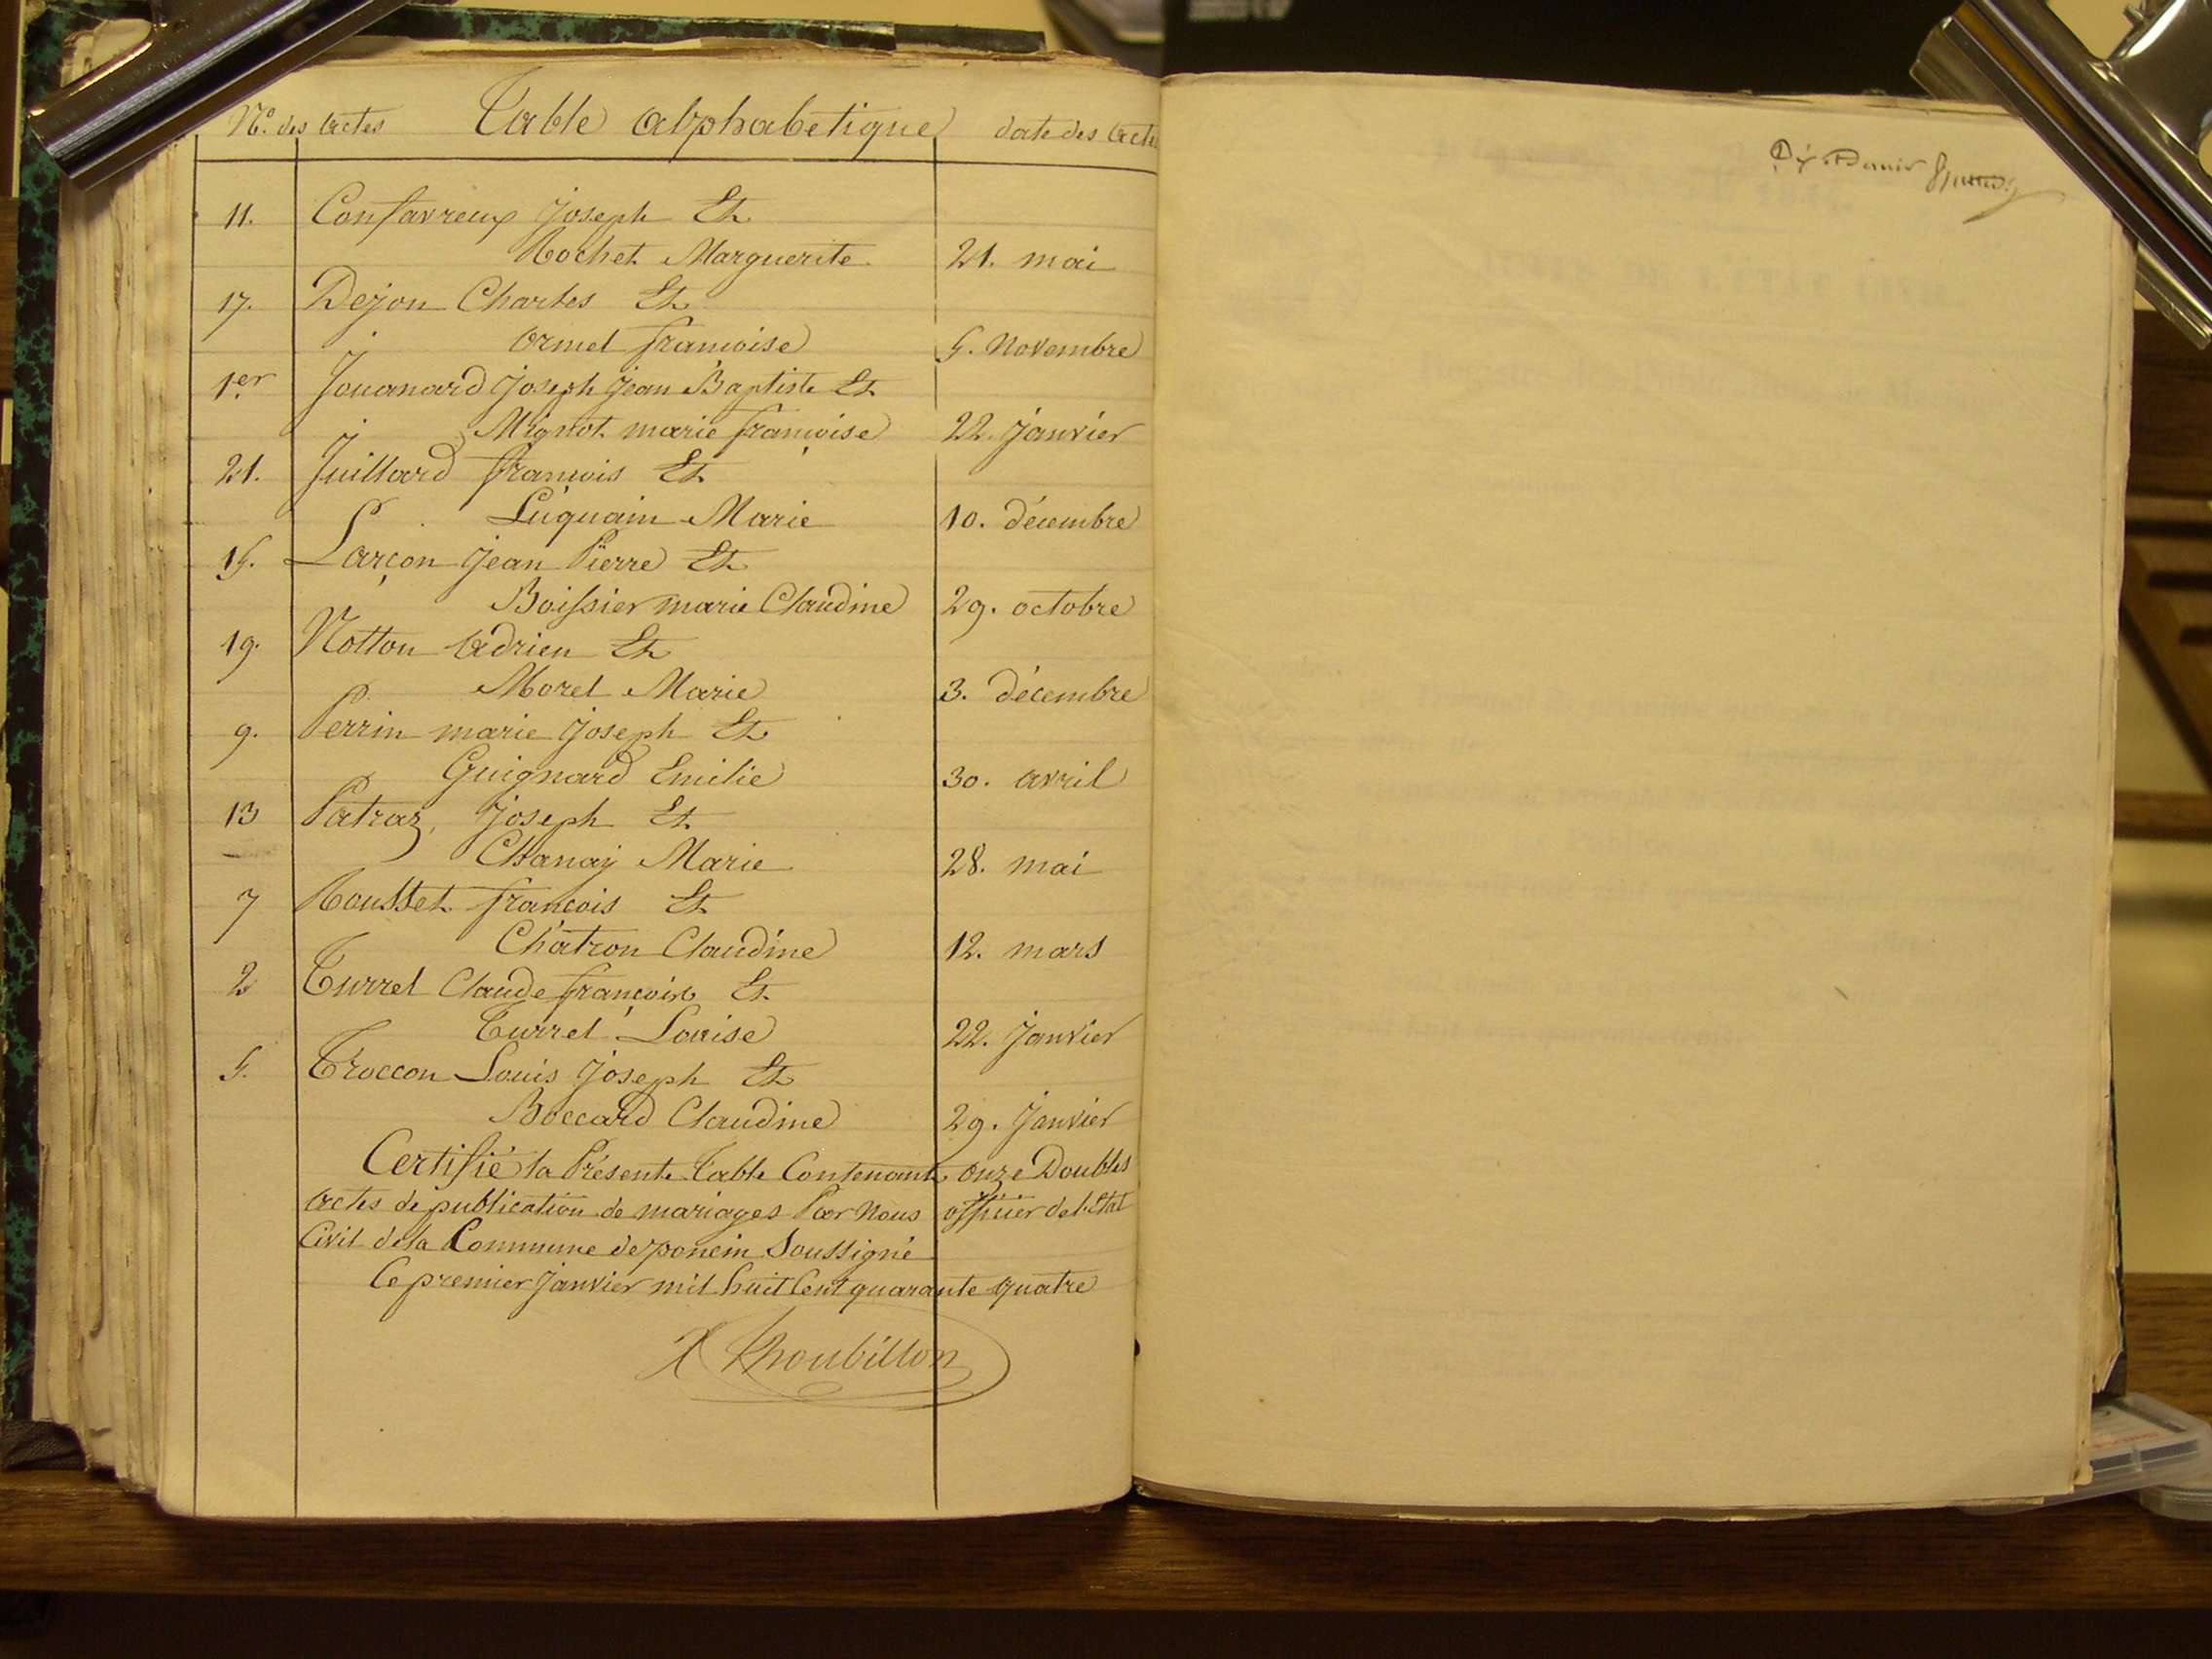 N.o des actes Table alphabetique date des acte
11. Confavreux Joseph Et
Rochet Marguerite 21. mai
17. Dejon Charles Et
ormel françoise 5. Novembre
1.er Jouanard Joseph Jean Baptiste Et
Mignot marie françoise 22. janvier
21. Juillard françois Et
Luquain Marie 10. décembre
15. Larçon Jean Pierre Et
Boissier marie Claudine 29. octobre
19. Notton adrien Et
Morel Marie 3. décembre
9. Perrin marie Joseph Et
Guignard Emilie 30. avril
13 Patraz, Joseph Et
Chanay Marie 28. mai
7 Rousset françois Et
Chatron Claudine 12. mars
2 Turrel Claude françois Et
Turrel Louise 22. Janvier
5. Troccon Louis Joseph Et
Boccard Claudine 29. Janvier
Certifié la Présente Table Contenant onze Doubles
actes de publication de mariages Par Nous officier de l'Etat
Civil de la Commune de poncin Soussigné
Ce premier Janvier mil huit Cent quarante quatre
Choubillon